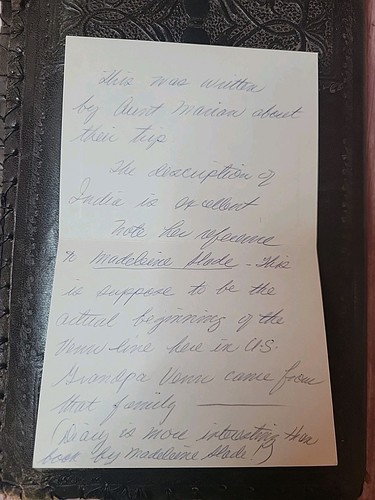 This was written
by Aunt Marian about
their trip
The description of
India is excellent
Note her reference
to Madeleine Slade - This
is suppose to be the
actual beginning of the
Venn line here in U.S.
Grandpa Venn came from
that family
(Diary is more interesting than
book by Madeleine Slade!)